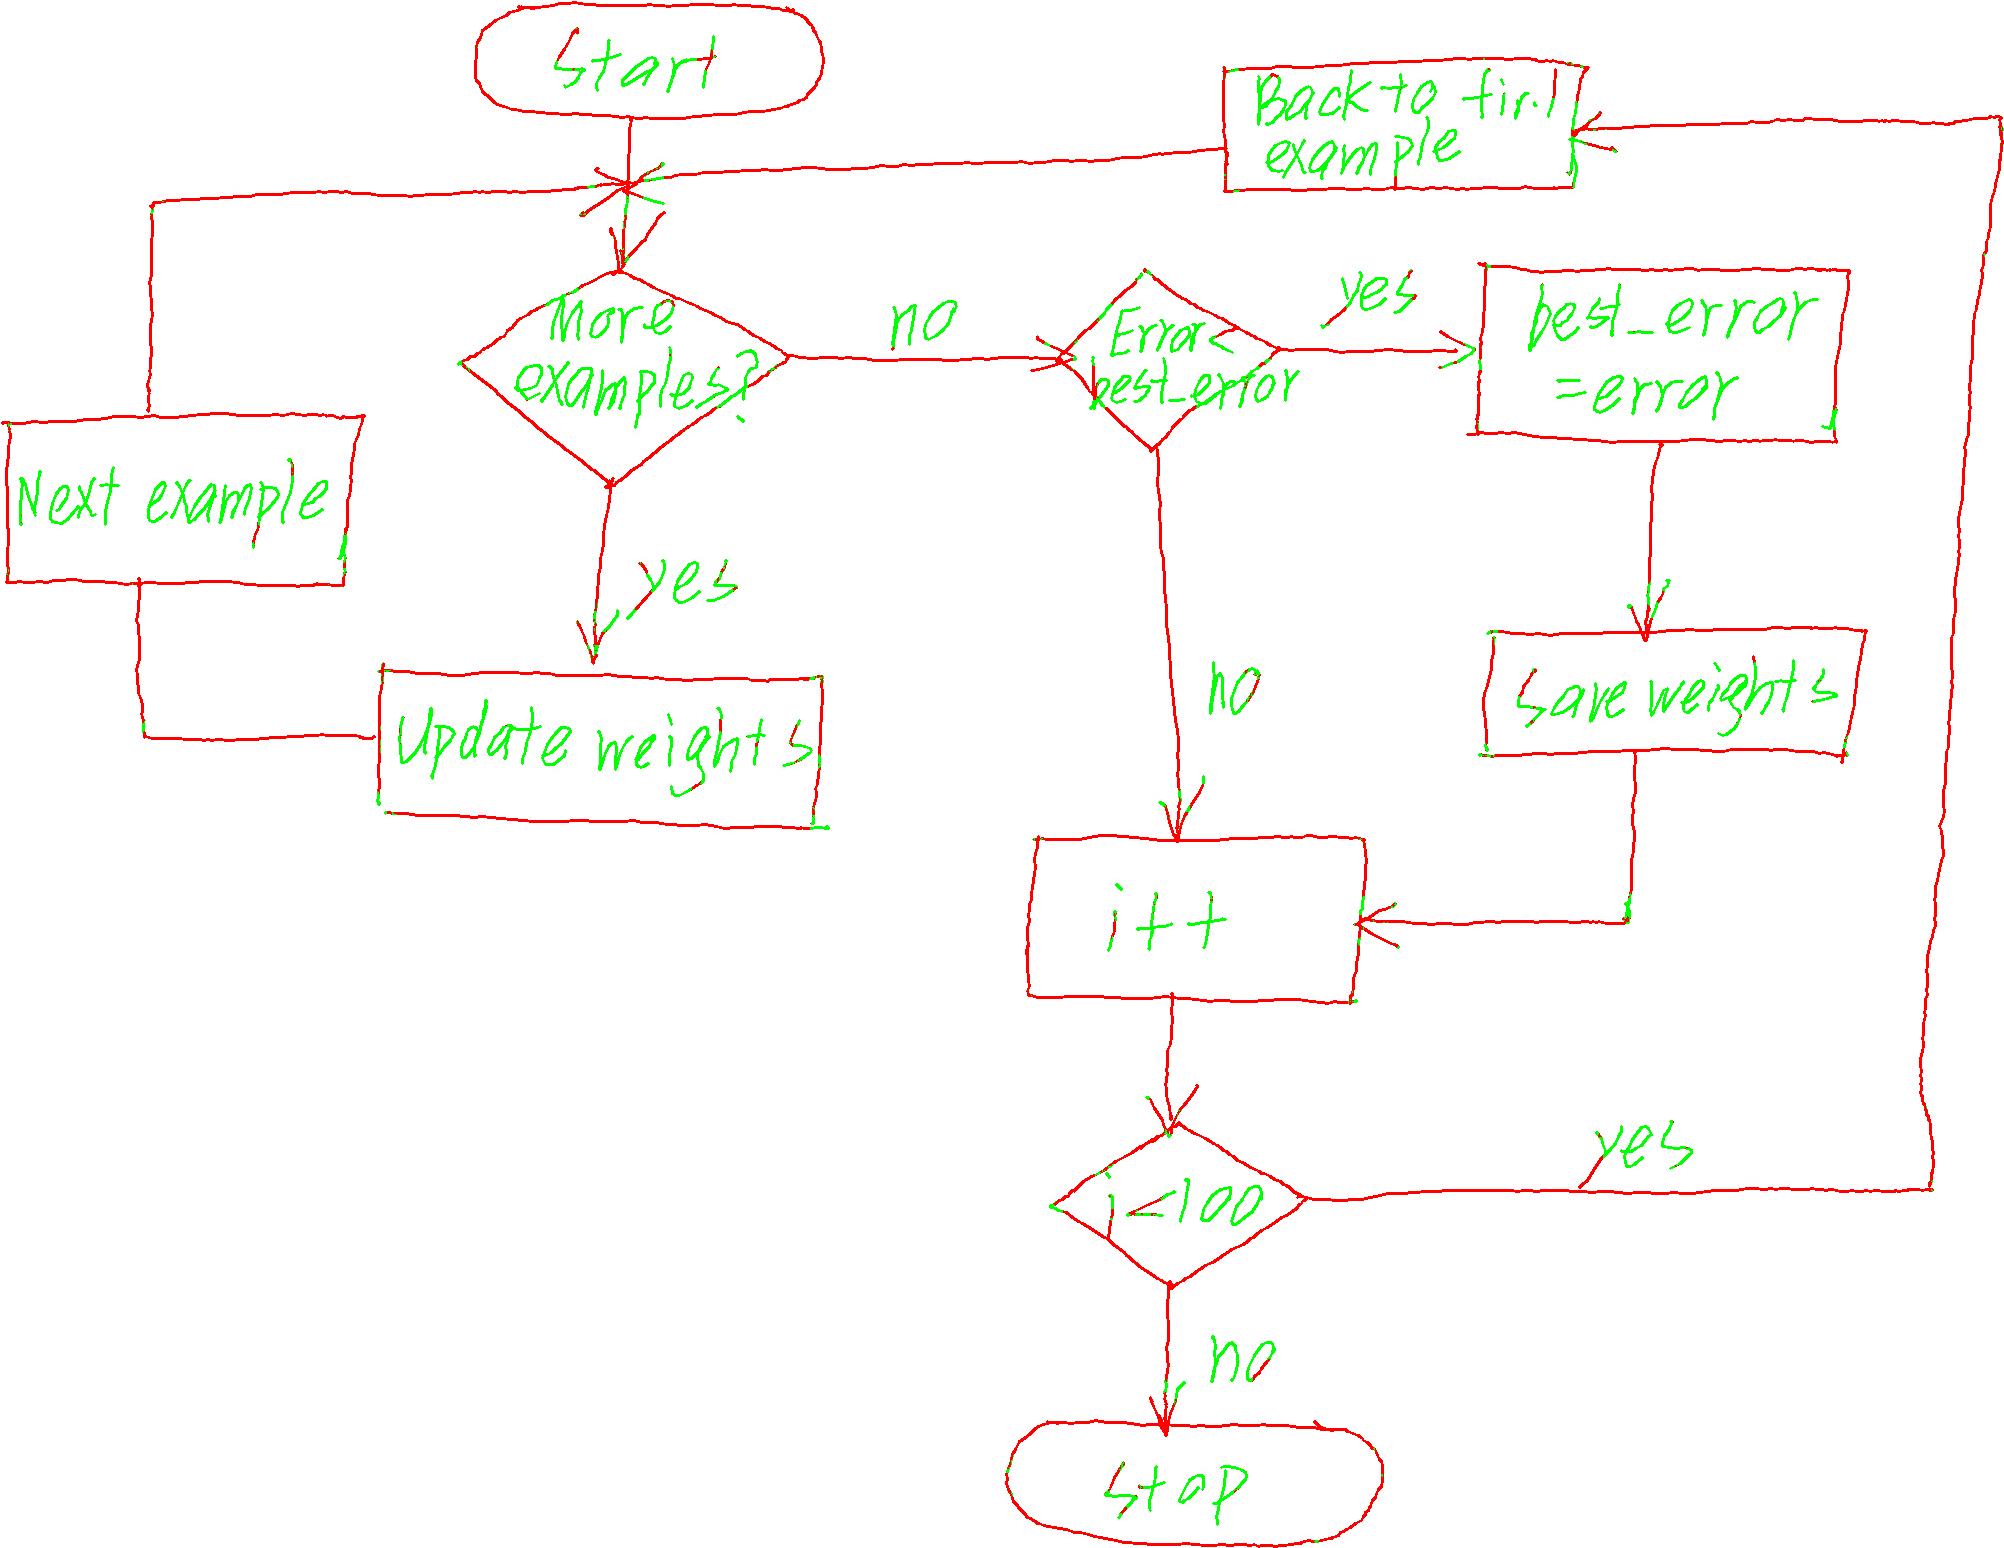 Start
Back to fir.l
example
More
examples?
no
Error<
best_error
yes
best_error
=error
Next example
yes
Update weights
no
Save weights
i++
i<100
yes
no
stop